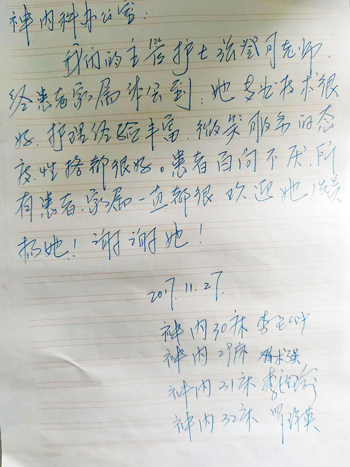 神内科办公室:
我们的主管护士张登可老师.
经患者家属体会到:她专业技术很
好.护理经验丰富.微笑服务的态
度性格都很好。患者百问不厌.所
有患者.家属一直都很欢迎她.
扬她!谢谢她!
2017.11.27.
神内30床李
神内29床
神内31床李
神内32床罗英